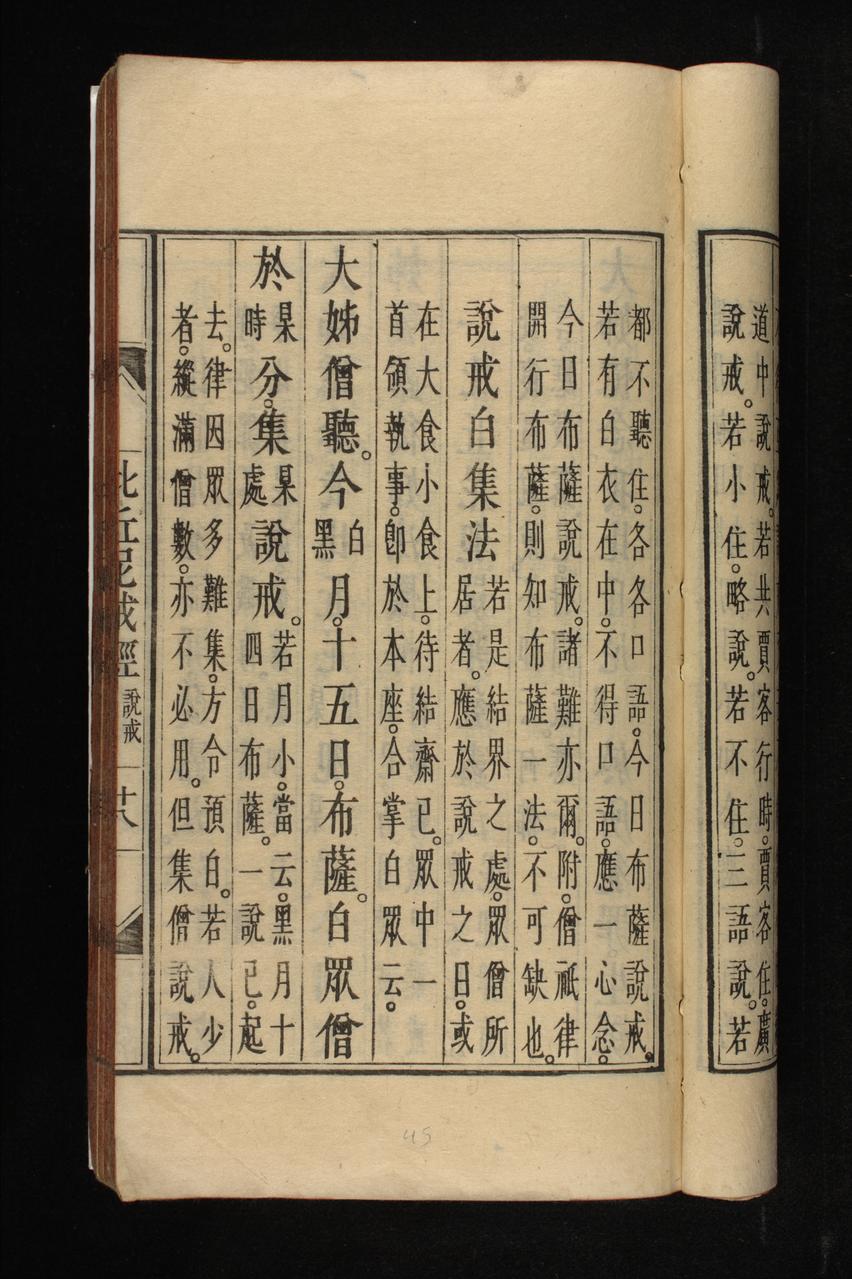 道中說戒。若共賈客行時。賈客住。廣
說戒。若小住。略說。若不住。三語說。若
都不聽住。各各口語。今日布薩說戒。
若有白衣在中。不得口語。應一心念。
今日布薩說戒。諸難亦爾。附。僧祇律
開行布薩。則知布薩一法。不可缺也。
說戒白集法若是結界之處。眾僧所
居者。應於說戒之日。或
在大食小食上。待結齋已。眾中一
首領執事。即於本座。合掌白眾云。
大姊僧聽。今白黑月。十五日。布薩。白眾僧
於某時分。集某處說戒。若月小。當云。黑月十
四日布薩。一說已。起
去。律因眾多難集。方令預白。若人少
者。縱滿僧數。亦不必用。但集僧說戒。
比丘尼戒經 說戒 廿八
45